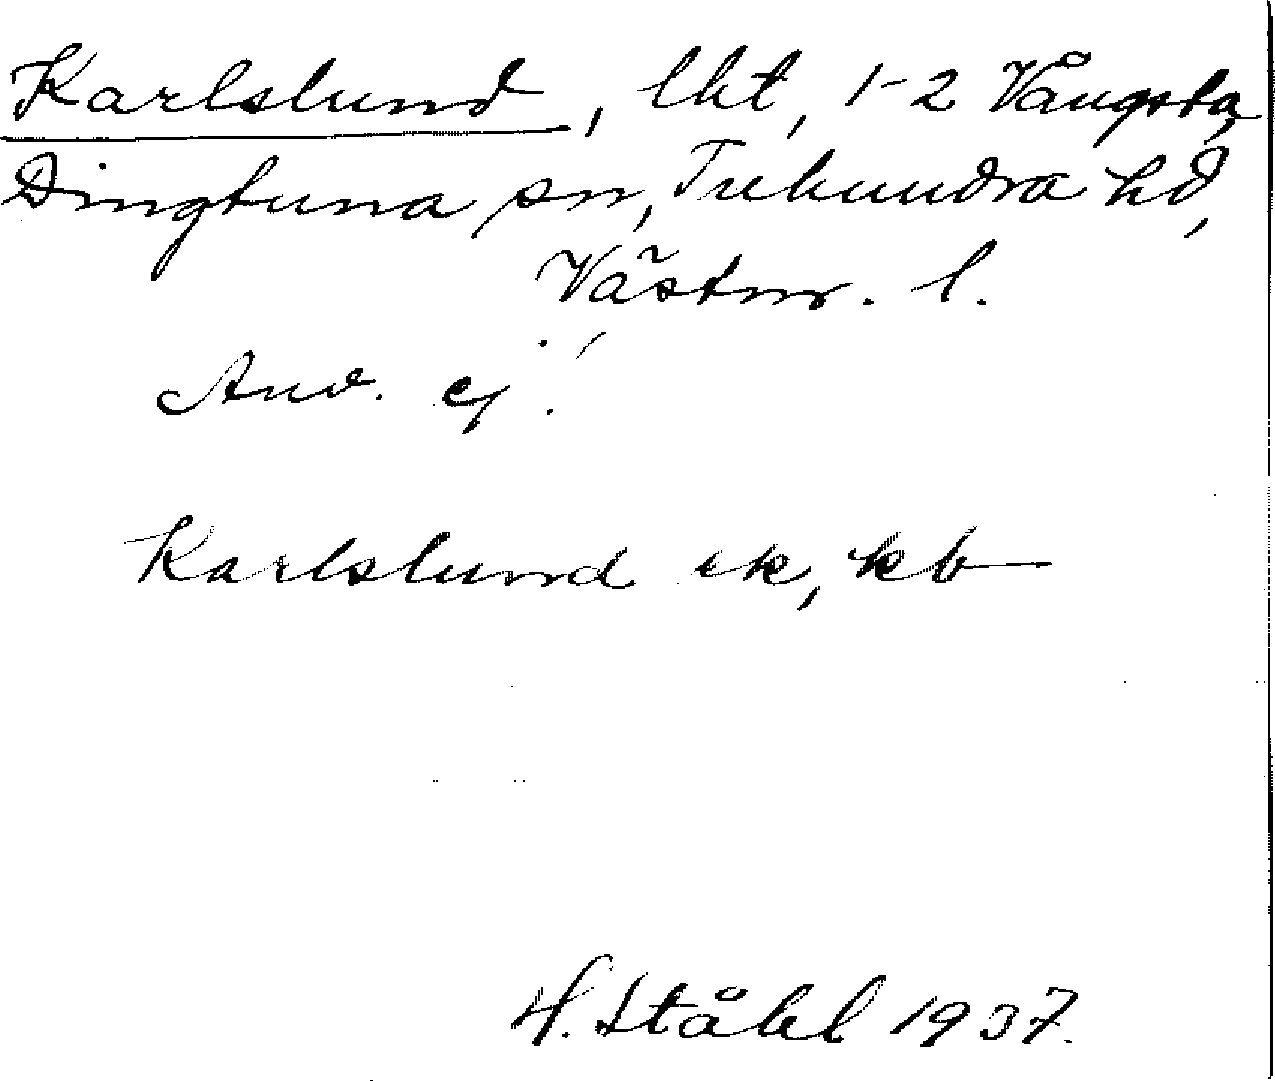 Karlslund, lht, 1-2 Vångsta,
Dingtuna sn, Tuhundra hd,
Västm. l.
Anv. ej!
Karlslund ek, kb
H. Ståhl 1937.